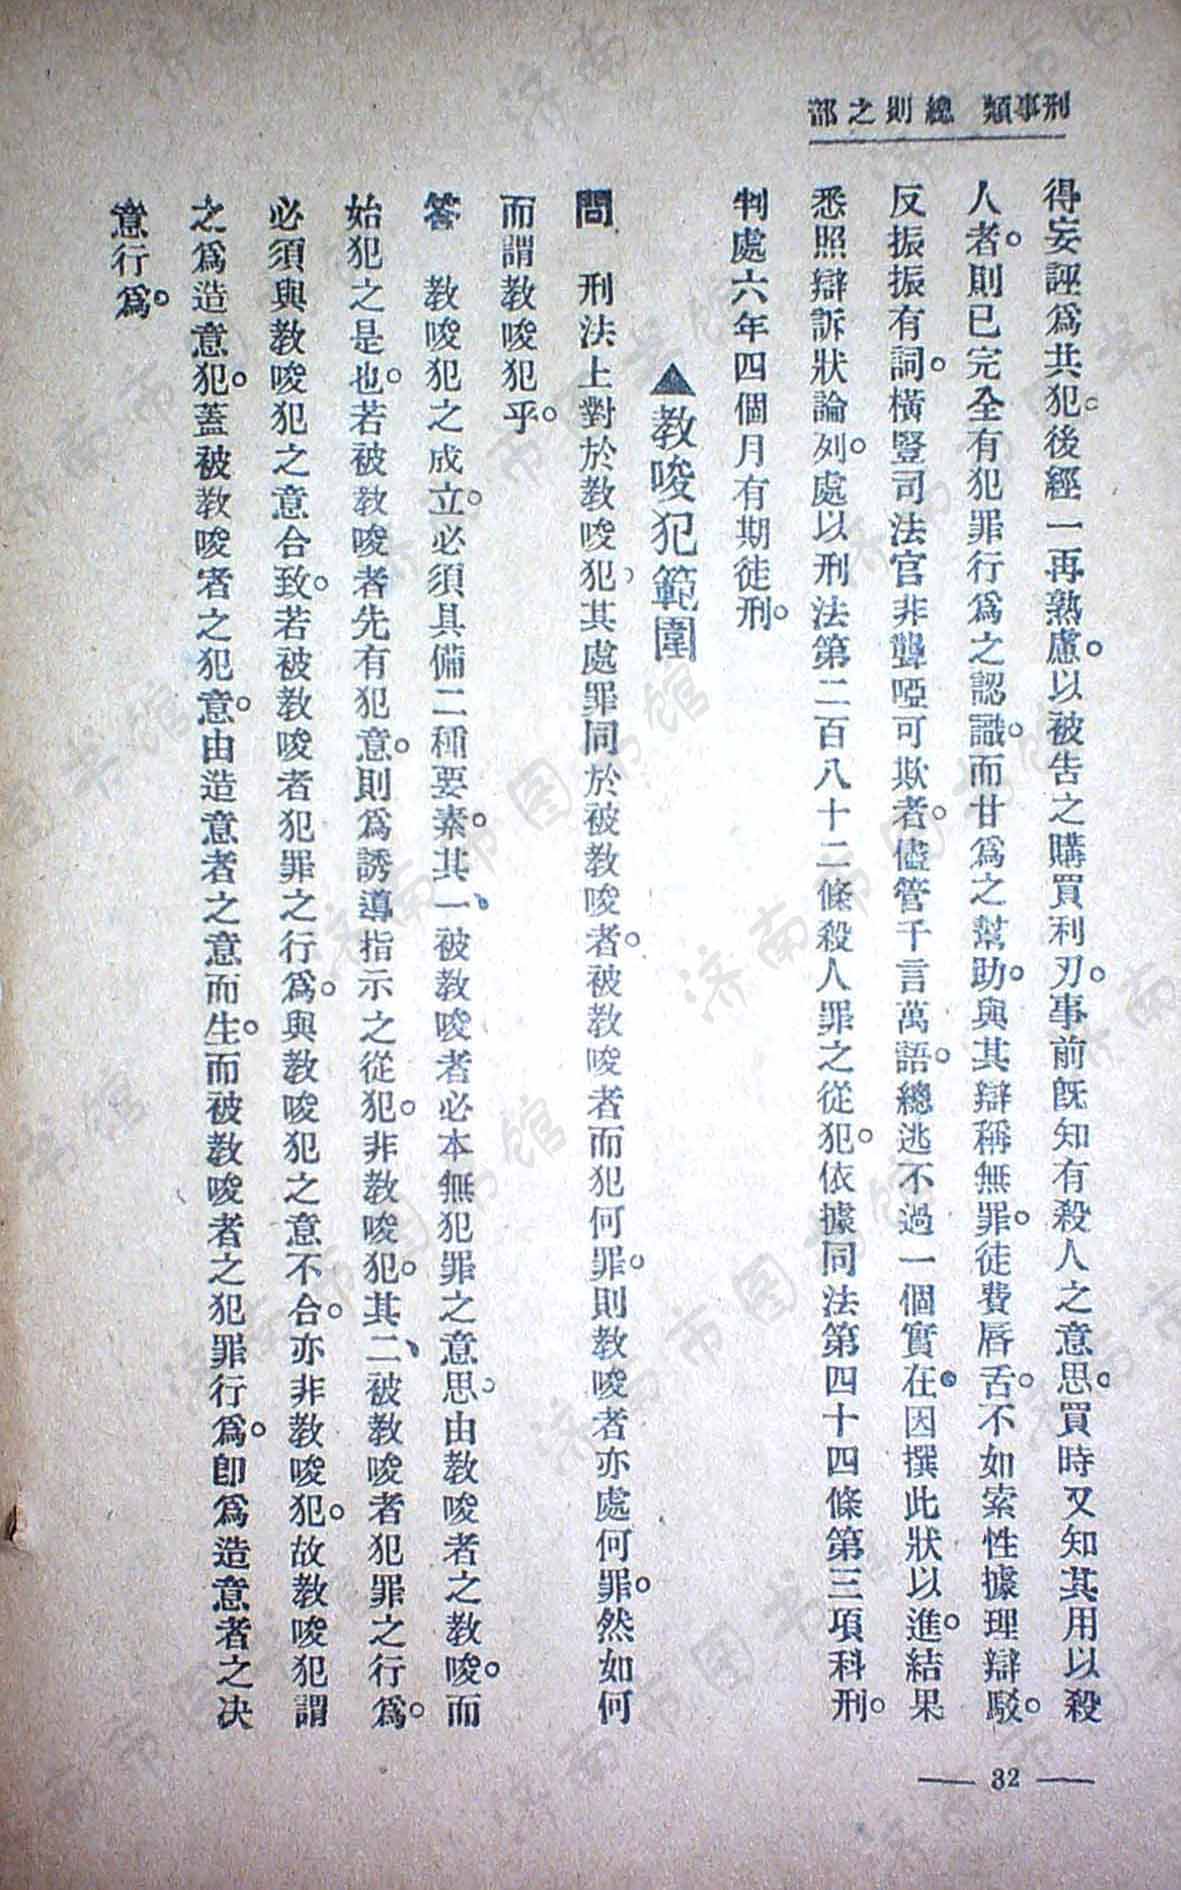 刑事類　總則之部
得妄誣爲共犯。後經一再熟慮。以被告之購買利刃。事前旣知有殺人之意思。買時又知其用以殺
人者。則已完全有犯罪行爲之認識。而甘爲之幫助。與其辯稱無罪。徒費唇舌。不如索性據理辯駁。
反振振有詞。橫豎司法官非聾啞可欺者。儘管千言萬語。總逃不過一個實在。因撰此狀以進。結果
悉照辯訴狀論列。處以刑法第二百八十二條殺人罪之從犯。依據同法第四十四條第三項科刑。
判處六年四個月有期徒刑。
▲教唆犯範圍
問　刑法上對於教唆犯。其處罪同於被教唆者。被教唆者而犯何罪。則教唆者亦處何罪。然如何
而謂教唆犯乎。
答　教唆犯之成立。必須具備二種要素。其一、被教唆者必本無犯罪之意思。由教唆者之教唆。而
始犯之是也。若被教唆者先有犯意。則爲誘導指示之從犯。非教唆犯。其二、被教唆者犯罪之行爲。
必須與教唆犯之意合致。若被教唆者犯罪之行爲。與教唆犯之意不合。亦非教唆犯。故教唆犯謂
之爲造意犯。蓋被教唆者之犯意。由造意者之意而生。而被教唆者之犯罪行爲。卽爲造意者之决
意行爲。
— 32 —
济南市图书馆